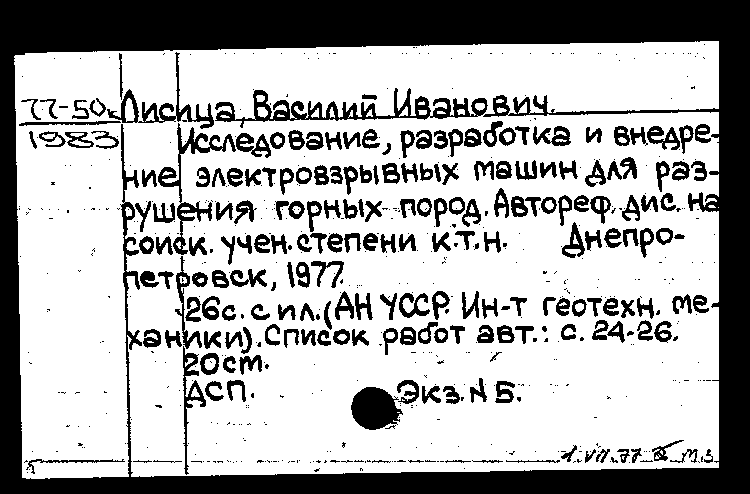 77-50к Лисица, Василий Иванович.
1983 Исследование, разработка и внедре-
ние электровзрывных машин для раз-
рушения горных пород. Автореф. дис. на
соиск. учен. степени к.т.н. Днепро-
петровск, 1977.
26с. с ил. (АН УССР. Ин-т геотехн. ме-
ханики). Список работ авт.: с. 24-26.
20см.
ДСП. Экз. № Б.
1. VII. 77